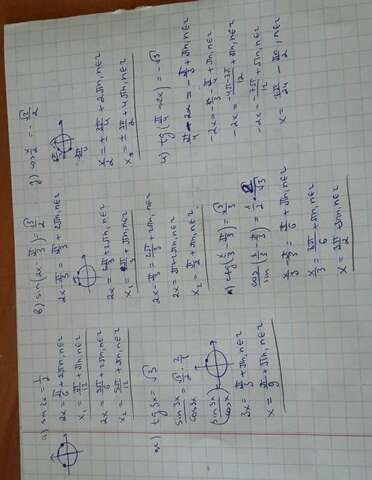 а) sin 2x = 1/2
2x = π/6 + 2πn, n∈Z
x₁ = π/12 + πn, n∈Z
2x = 5π/6 + 2πn, n∈Z
x₂ = 5π/12 + πn, n∈Z
в) sin(2x - π/3) = √3/2
2x - π/3 = π/3 + 2πn, n∈Z
2x = 2π/3 + 2πn, n∈Z
x₁ = π/3 + πn, n∈Z
2x - π/3 = 2π/3 + 2πn, n∈Z
2x = π + 2πn, n∈Z
x₂ = π/2 + πn, n∈Z
д) cos x/2 = -√2/2
3π/4
-3π/4
x/2 = ± 3π/4 + 2πn, n∈Z
x = ± 3π/2 + 4πn, n∈Z
ж) tg 3x = √3
sin3x/cos3x = √3/2 · 2/1
sin3x/cos3x
3x = π/3 + πn, n∈Z
x = π/9 + πn/3, n∈Z
ctg(x/3 - π/3) = √3/3
cos(x/3 - π/3)/sin = 1/2 · 2/√3
x/3 - π/3 = π/6 + πn, n∈Z
x/3 = 3π/6 + πn, n∈Z
x = 3π/2 + 3πn, n∈Z
и) tg(π/4 - 2x) = -√3
π/4 - 2x = -π/3 + πn, n∈Z
-2x = -π/3 - π/4 + πn, n∈Z
-2x = -4π-3π/12 + πn, n∈Z
-2x = -7π/12 + πn, n∈Z
x = 7π/24 - πn/2, n∈Z